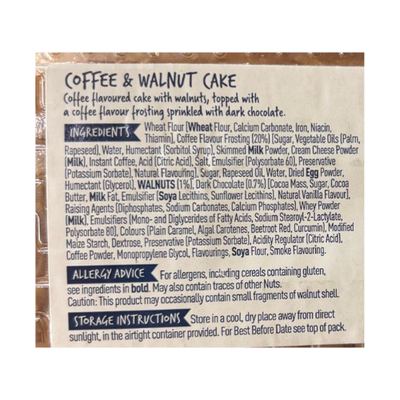 COFFEE & WALNUT CAKE
Coffee flavoured cake with walnuts, topped with
a coffee flavour frosting sprinkled with dark chocolate.
INGREDIENTS Wheat Flour (Wheat Flour, Calcium Carbonate, Iron, Niacin,
Thiamin), Coffee Flavour Frosting (20%) (Sugar, Vegetable Oils (Palm,
Rapeseed), Water, Humectant (Sorbitol Syrup), Skimmed Milk Powder, Cream Cheese Powder
(Milk), Instant Coffee, Acid (Citric Acid), Salt, Emulsifier (Polysorbate 60), Preservative
(Potassium Sorbate), Natural Flavouring), Sugar, Rapeseed Oil, Water, Dried Egg Powder,
Humectant (Glycerol), WALNUTS (1%), Dark Chocolate (0.7%) (Cocoa Mass, Sugar, Cocoa
Butter, Milk Fat, Emulsifier (Soya Lecithins, Sunflower Lecithins), Natural Vanilla Flavour),
Raising Agents (Diphosphates, Sodium Carbonates, Calcium Phosphates), Whey Powder
(Milk), Emulsifiers (Mono- and Diglycerides of Fatty Acids, Sodium Stearoyl-2-Lactylate,
Polysorbate 80), Colours (Plain Caramel, Algal Carotenes, Beetroot Red, Curcumin), Modified
Maize Starch, Dextrose, Preservative (Potassium Sorbate), Acidity Regulator (Citric Acid),
Coffee Powder, Monopropylene Glycol, Flavourings, Soya Flour, Smoke Flavouring.
ALLERGY ADVICE For allergens, including cereals containing gluten,
see ingredients in bold. May also contain traces of other Nuts.
Caution: This product may occasionally contain small fragments of walnut shell.
STORAGE INSTRUCTIONS Store in a cool, dry place away from direct
sunlight, in the airtight container provided. For Best Before Date see top of pack.